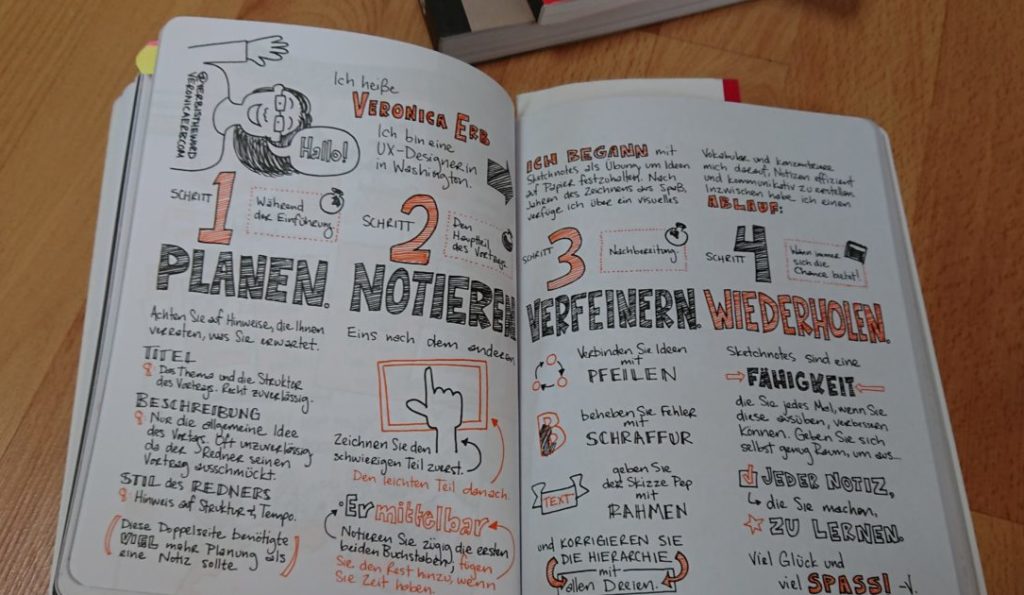 @VERBISTHEWORD
VERONICAERB.COM
Hallo!
Ich heiße
VERONICA ERB
Ich bin eine
UX-Designerin
in Washington.
SCHRITT
1
Während
der Einführung
PLANEN.
Achten Sie auf Hinweise, die Ihnen
verraten, was Sie erwartet.
TITEL
Das Thema und die Struktur
des Vortrags. Recht zuverlässig.
BESCHREIBUNG
Nur die allgemeine Idee
des Vortags. Oft unzuverlässig
da der Redner seinen
Vortrag ausschmückt.
STIL des REDNERS
Hinweis auf Struktur & Tempo.
Diese Doppelseite benötigte
VIEL mehr Planung als
eine Notiz sollte
SCHRITT
2
Den
Hauptteil
des Vortrags
NOTIEREN
Eins nach dem anderen.
Zeichnen Sie den
schwierigen Teil zuerst.
Den leichten Teil danach.
Ermittelbar
Notieren Sie zügig die ersten
beiden Buchstaben, fügen
Sie den Rest hinzu, wenn
Sie Zeit haben.
ICH BEGANN mit
Sketchnotes als Übung, um Ideen
auf Papier festzuhalten. Nach
Jahren des Zeichnens aus Spaß,
verfüge ich über ein visuelles
Vokabular und konzentriere
mich darauf, Notizen effizient
und kommunikativ zu erstellen.
Inzwischen habe ich einen
ABLAUF:
SCHRITT
3
Nachbereitung
VERFEINERN.
Verbinden Sie Ideen
mit
PFEILEN
B
beheben Sie Fehler
mit
SCHRAFFUR
TEXT
geben Sie
der Skizze Pep
mit
RAHMEN
und KORRIGIEREN SIE
DIE HIERARCHIE
mit
allen Dreien.
SCHRITT
4
Wann immer
sich die
Chance bietet!
WIEDERHOLEN.
Sketchnotes sind eine
FÄHIGKEIT
die Sie jedes Mal, wenn Sie
diese ausüben, verbessern
können. Geben Sie sich
selbst genug Raum, um aus...
JEDER NOTIZ,
die Sie machen,
ZU LERNEN.
Viel Glück und
viel SPASS! -V.